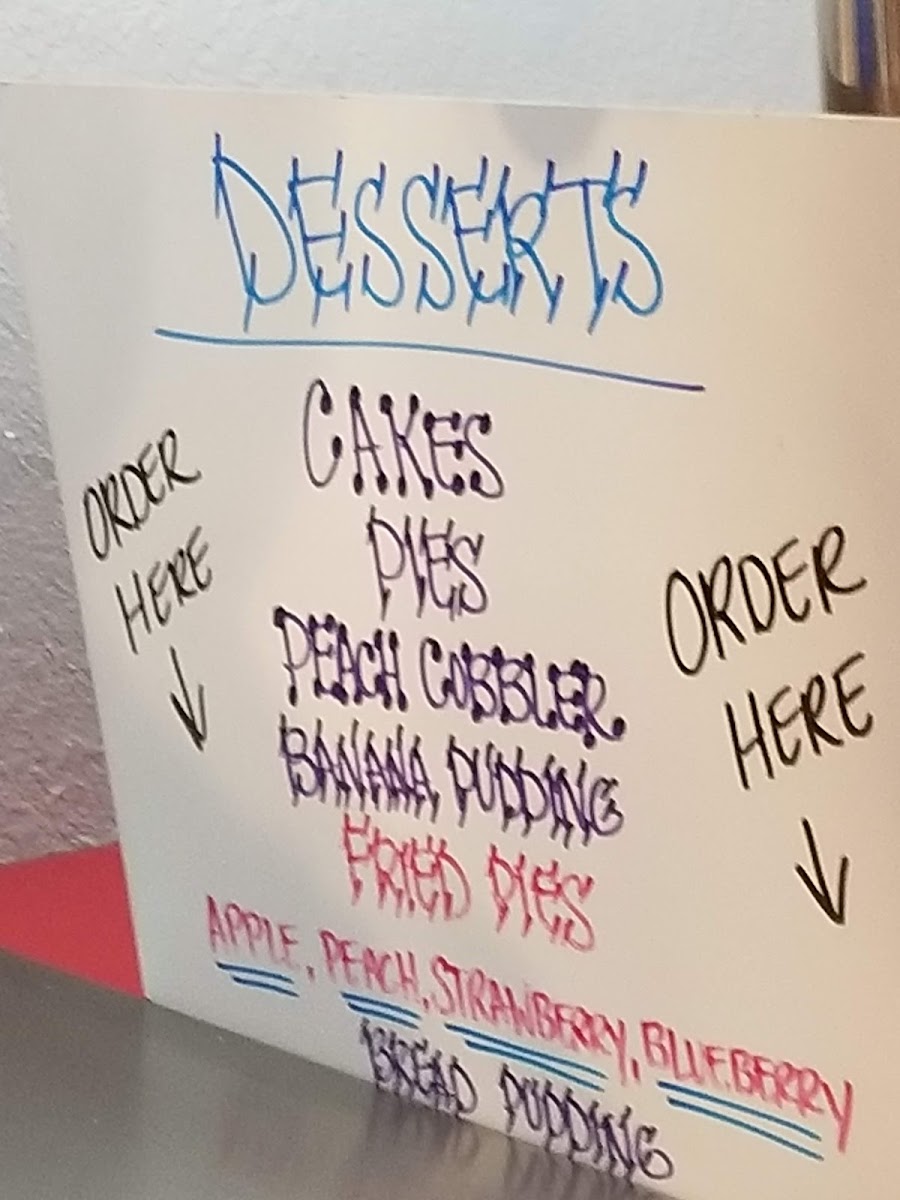 DESSERTS
CAKES
PIES
PEACH COBBLER
BANANA PUDDING
FRIED PIES
APPLE, PEACH, STRAWBERRY, BLUEBERRY
BREAD PUDDING
ORDER
HERE
ORDER
HERE